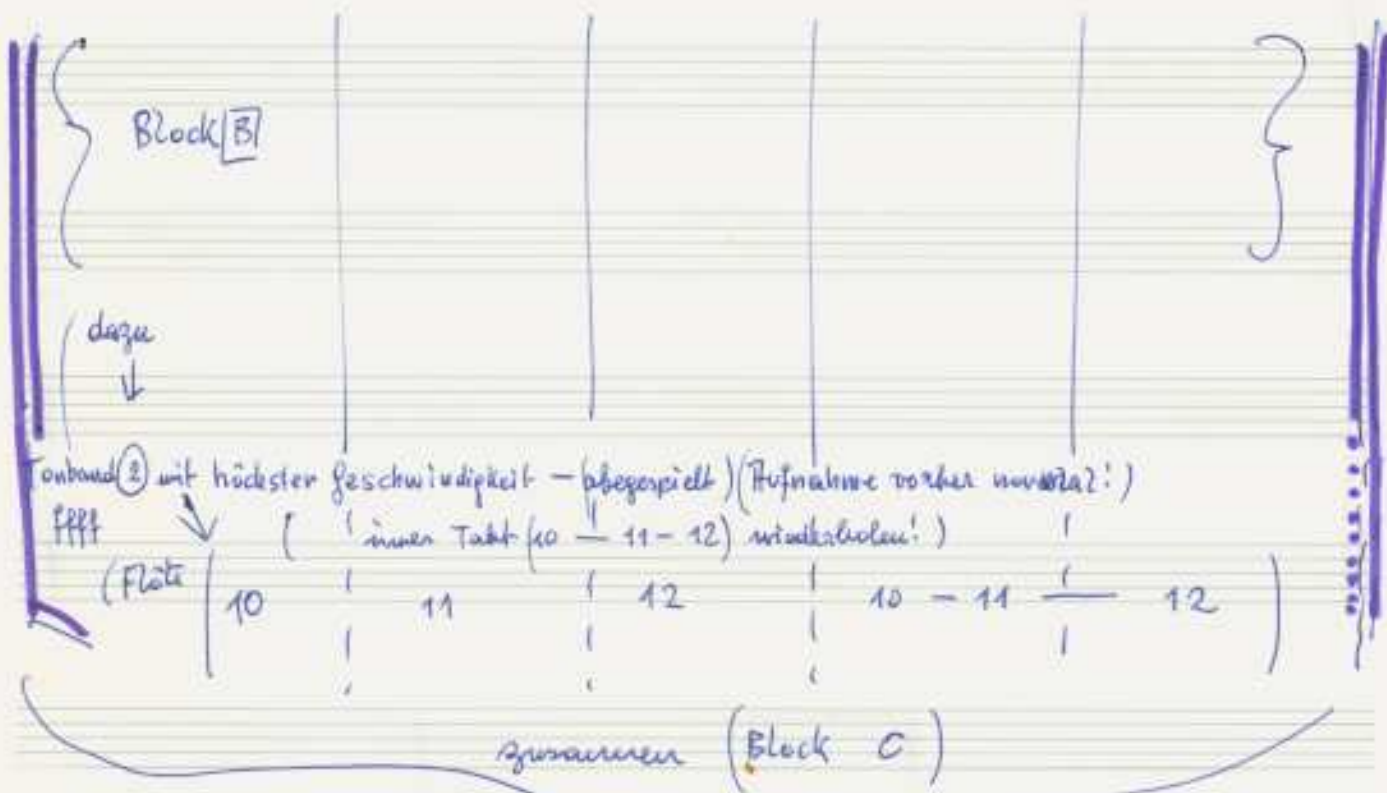 Block B
dazu
Tonband 2 mit höchster Geschwindigkeit – (abgespielt) (Aufnahme vorher normal!)
ffff ( immer Takt (10 – 11 – 12) wiederholen! )
(Flöte 10 11 12 10 – 11 — 12 )
zusammen (Block C)